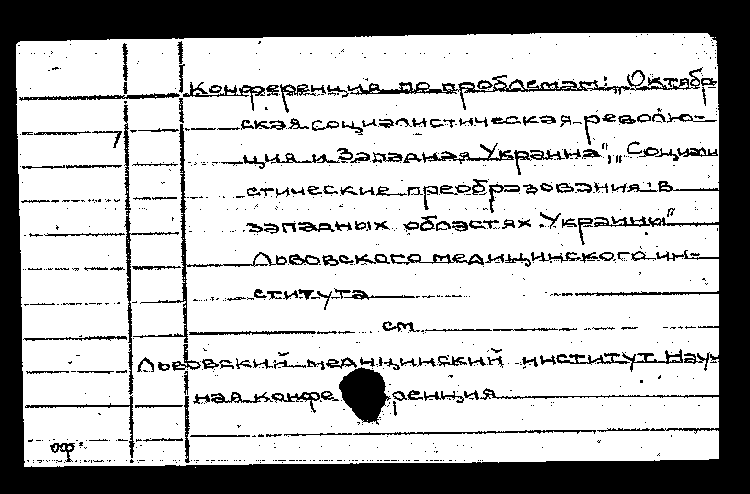 Конференция по проблемам: „Октябрь
ская социалистическая револю-
ция и Западная Украина", „Социали
стические преобразования в
западных областях Украины"
Львовского медицинского ин-
ститута
см
Львовский медицинский институт Науч
ная конференция